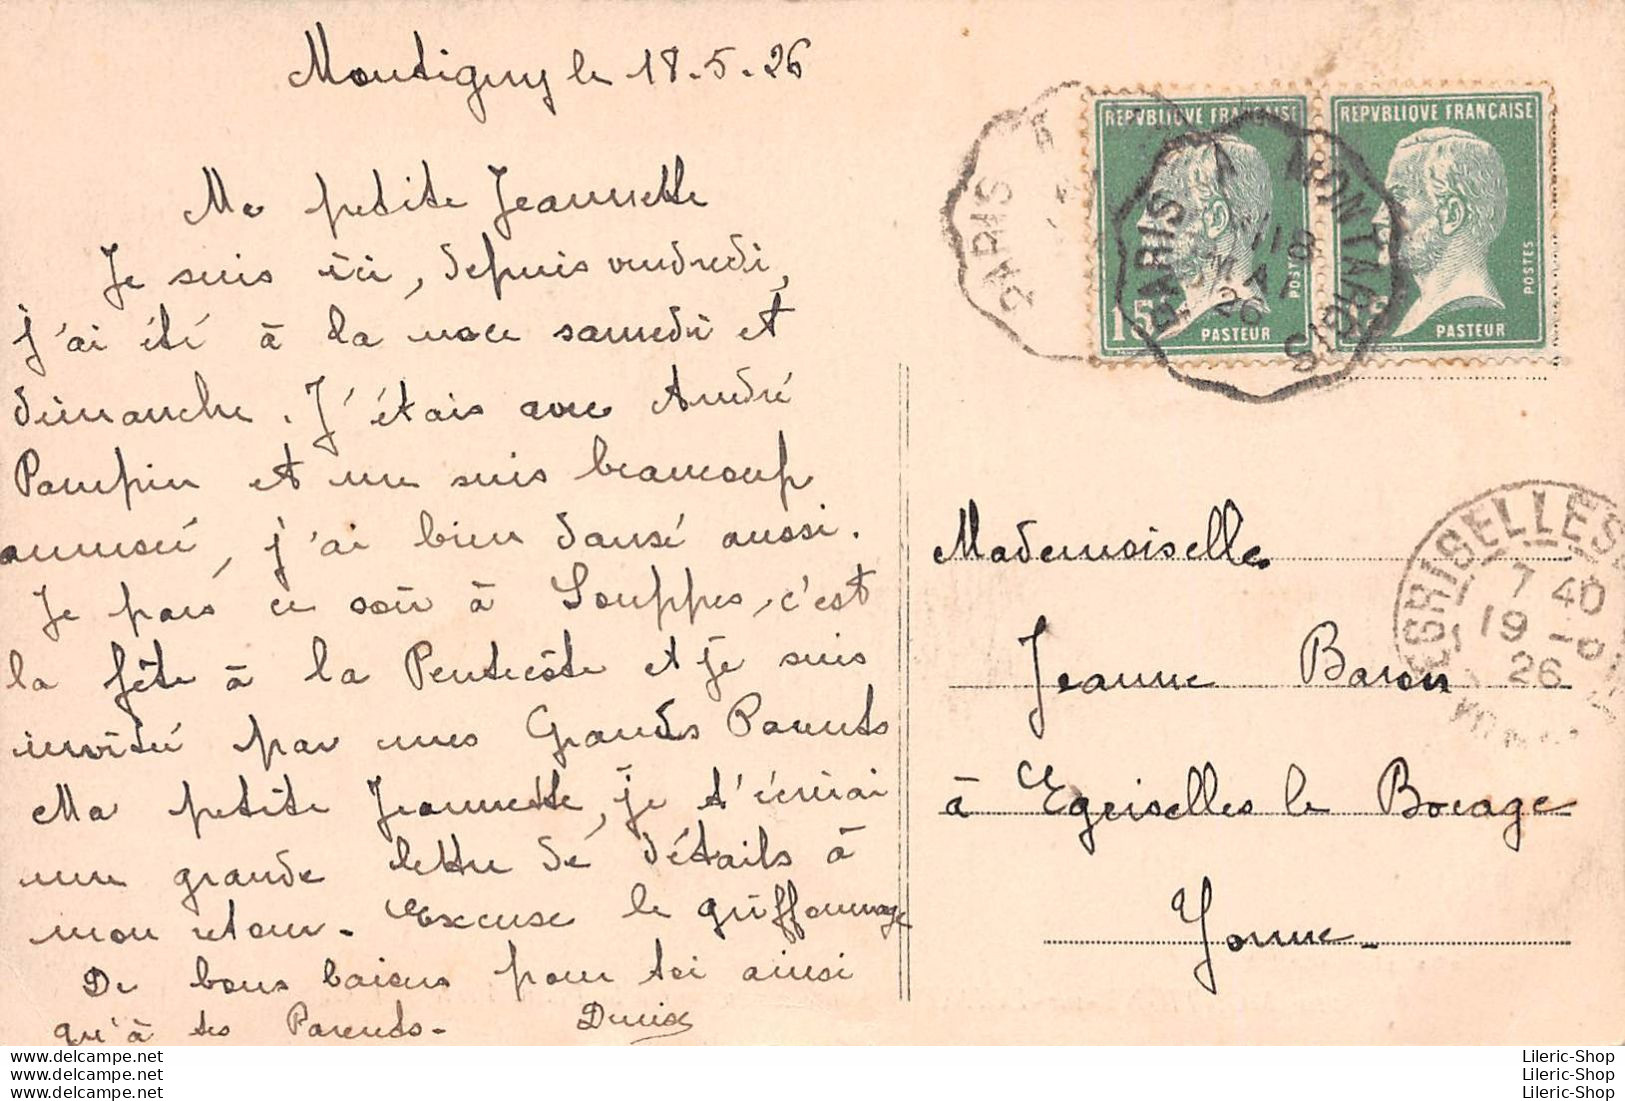 Montigny le 18.5.26
Ma petite Jeannette
Je suis ici, depuis vendredi,
j'ai été à la noce samedi et
dimanche. J'étais avec André
Pampin et me suis beaucoup
amusée, j'ai bien dansé aussi.
Je pars ce soir à Souppes, c'est
la fête à la Pentecôte et je suis
invitée par mes Grands Parents
Ma petite Jeannette, je t'écrirai
une grande lettre de détails à
mon retour. Excuse le griffonnage
De bons baisers pour toi ainsi
qu'à tes Parents.
Denise
REPVBLIQVE FRANÇAISE
15
POSTES
PASTEUR
REPVBLIQVE FRANÇAISE
POSTES
PASTEUR
PARIS A
PARIS A MONTARGIS
18
MAI
26
EGRISELLES
7 40
19 -5
26
YONNE
Mademoiselle
Jeanne Baron
à Egriselles le Bocage
Yonne.
www.delcampe.net
www.delcampe.net
www.delcampe.net
Lileric-Shop
Lileric-Shop
Lileric-Shop